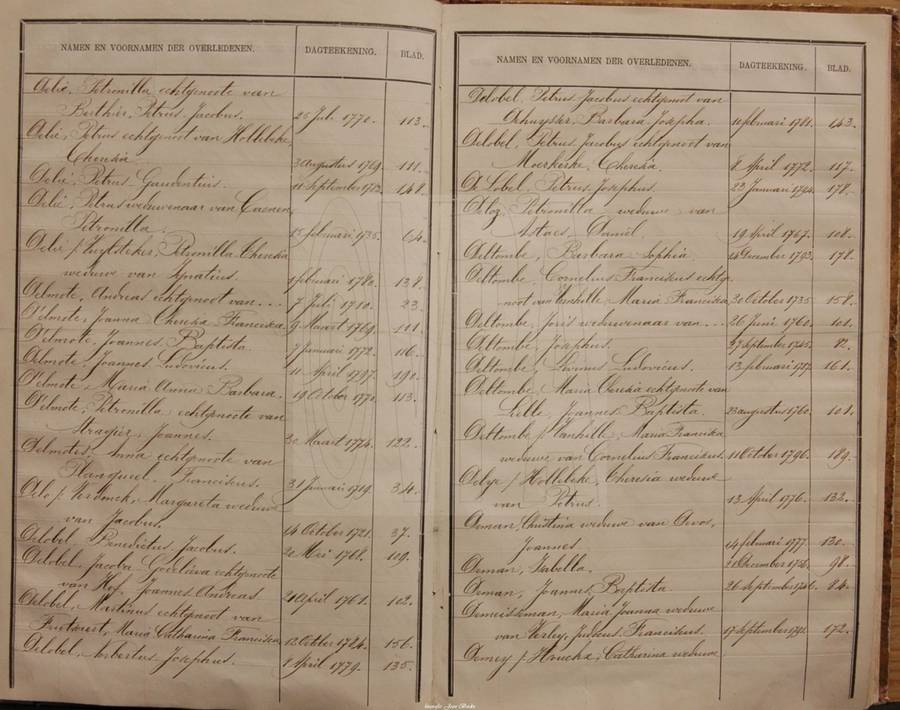 NAMEN EN VOORNAMEN DER OVERLEDENEN. DAGTEEKENING. BLAD.
Delie, Petronilla echtgenoote van
Berthier, Petrus Jacobus. 25 Juli 1770. 113.
Delie, Petrus echtgenoot van Hollebeke,
Theresia 3 augustus 1769. 111.
Delie, Petrus Gaudentius. 11 September 1783. 148.
Delie, Petrus weduwenaar van Caenen,
Petronilla. 25 februari 1735. 64.
Delie / Zuyttebeke, Petronilla Theresia
weduwe van Ignatius. 1 februari 1780. 138.
Delmote, Andreas echtgenoot van ... 7 Juli 1710. 23.
D'elmote, Joanna Theresia Francisca. 9 Maart 1769. 111.
D'elmote, Joannes Baptista. 7 Januari 1772. 116.
Delmote, Joannes Ludovicus. 11 April 1797. 190.
D'elmote, Maria Anna Barbara. 19 October 1770. 113.
D'elmote, Petronilla echtgenoote van
Stragier, Joannes. 30 Maart 1774. 122.
Delmotte, Anna echtgenoote van
Planquel, Franciscus. 31 Januari 1719. 34.
Delo / Verdonck, Margareta weduwe
van Jacobus. 14 October 1721. 37.
Delobel Benedictus Jacobus. 20 Mei 1768. 109.
Delobel, Jacoba Godeliva echtgenoote
van Hof, Joannes Andreas 21 April 1761. 102.
Delobel, Martinus echtgenoot van
Maria Catharina Francisca 12 October 1784. 156.
Delobel, Norbertus Josephus. 8 April 1779. 135.
NAMEN EN VOORNAMEN DER OVERLEDENEN. DAGTEEKENING. BLAD.
Delobel, Petrus Jacobus echtgenoot van
Dhuyster, Barbara Josepha. 10 februari 1781. 143.
Delobel, Petrus Jacobus echtgenoot van
Moerkerke, Theresia. 8 April 1772. 117.
De Lobel, Petrus Josephus. 23 Januari 1794. 178.
Deloz, Petronilla weduwe van
Staes, Daniel. 19 April 1767. 108.
Deltombe, Barbara Sophia. 24 December 1793. 178.
Deltombe, Cornelius Franciscus echtg-
noot van Vanhille Maria Francisca 30 October 1785. 158.
Deltombe, Joris weduwenaar van ... 26 Juni 1760. 101.
Deltombe, Josephus. 27 September 1745. 82.
Deltombe, Livinus Ludovicus. 13 februari 1787. 161.
Deltombe, Maria Theresia echtgenoote van
Lelle, Joannes Baptista. 23 augustus 1760. 101.
Deltombe / Vanhelle, Maria Francisca
weduwe van Cornelius Franciscus. 11 October 1796. 189.
Delye / Hollebeke, Theresia weduwe
van Petrus. 13 April 1776. 132.
Deman, Christina weduwe van Devos,
Joannes. 14 februari 1777. 130.
Deman, Isabella. 21 December 1756. 98.
Deman, Joannes Baptista 26 September 1746. 84.
Demeisteman, Maria Joanna weduwe
van Verley, Judocus Franciscus. 17 September 1792. 172.
Demey / Houcke, Catharina weduwe